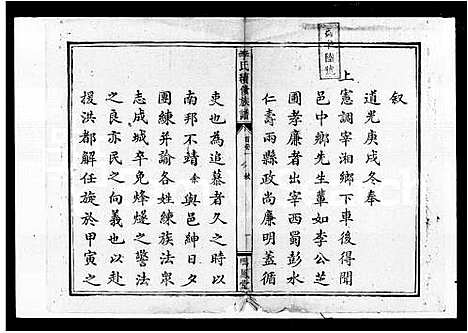 叙
道光庚戌冬奉
上
憲調宰湘鄉下車後得聞
邑中鄉先生輩如李公芝
圃孝廉者出宰西蜀彭水
仁壽兩縣政尚廉明蓋循
李氏續修族譜
首卷一
叙
鳴鳳堂
吏也為追慕者久之時以
南邦不靖余與邑紳日夕
團練并諭各姓練族法眾
志成城卒免烽燧之警法
之良亦民之向義也以赴
援洪都解任旋於甲寅之